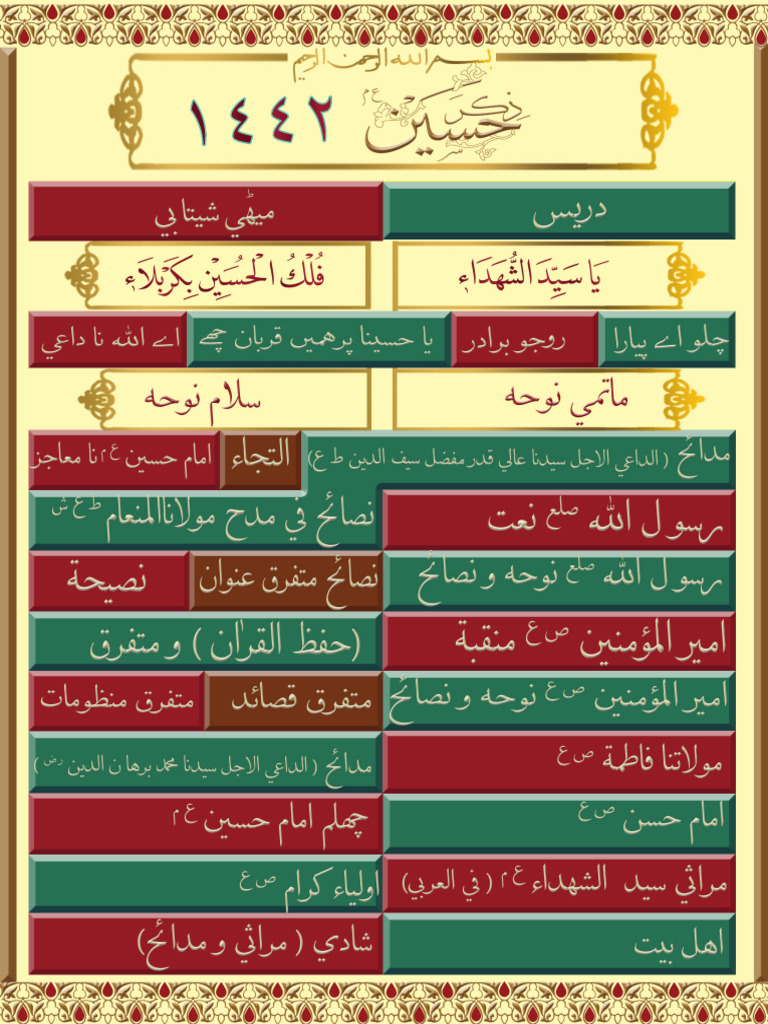 بسم الله الرحمن الرحيم
ذكر حسين ع م ١٤٤٢
دريس
ميٹهي شيتابي
يَا سَيِّدَ الشُّهَدَاءِ
فُلْكُ الْحُسَيْنِ بِكَرْبَلَاءِ
چلو اے پيارا
روجو برادر
يا حسينا پرهميں قربان چهے
اے الله نا داعي
ماتمي نوحه
سلام نوحه
مدائح (الداعي الاجل سيدنا عالي قدر مفضل سيف الدين ط ع)
التجاء
امام حسين ع م نا معاجز
رسول الله صلع نعت
نصائح في مدح مولانا المنعام ط ع ش
رسول الله صلع نوحه و نصائح
نصائح متفرق عنوان
نصيحة
امير المؤمنين ص ع منقبة
(حفظ القرآن) و متفرق
امير المؤمنين ص ع نوحه و نصائح
متفرق قصائد
متفرق منظومات
مولاتنا فاطمة ص ع
مدائح (الداعي الاجل سيدنا محمد برهان الدين رض)
امام حسن ص ع
چهلم امام حسين ع م
مراثي سيد الشهداء ع م (في العربي)
اولياء كرام ص ع
اهل بيت
شادي (مراثي و مدائح)